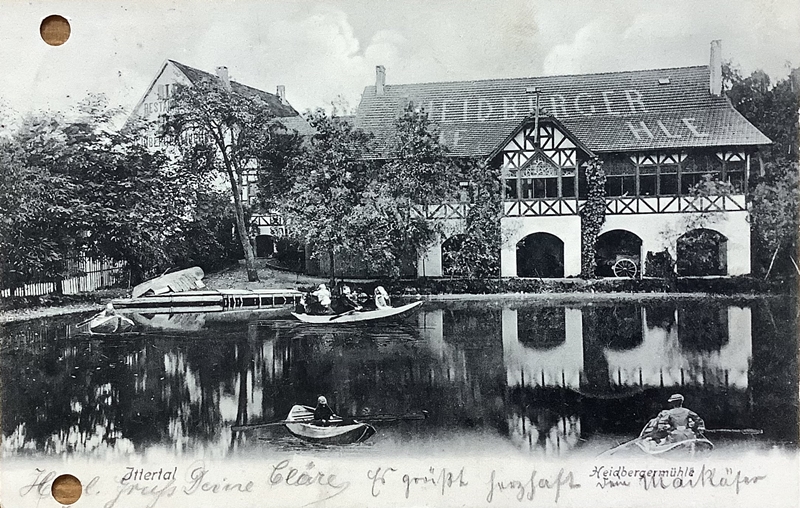 REST
HEIDBERGER
HLE
Ittertal
Heidbergermühle
Herzl. Gruß Deine Cläre. Es grüßt herzhaft Dein Maikäfer